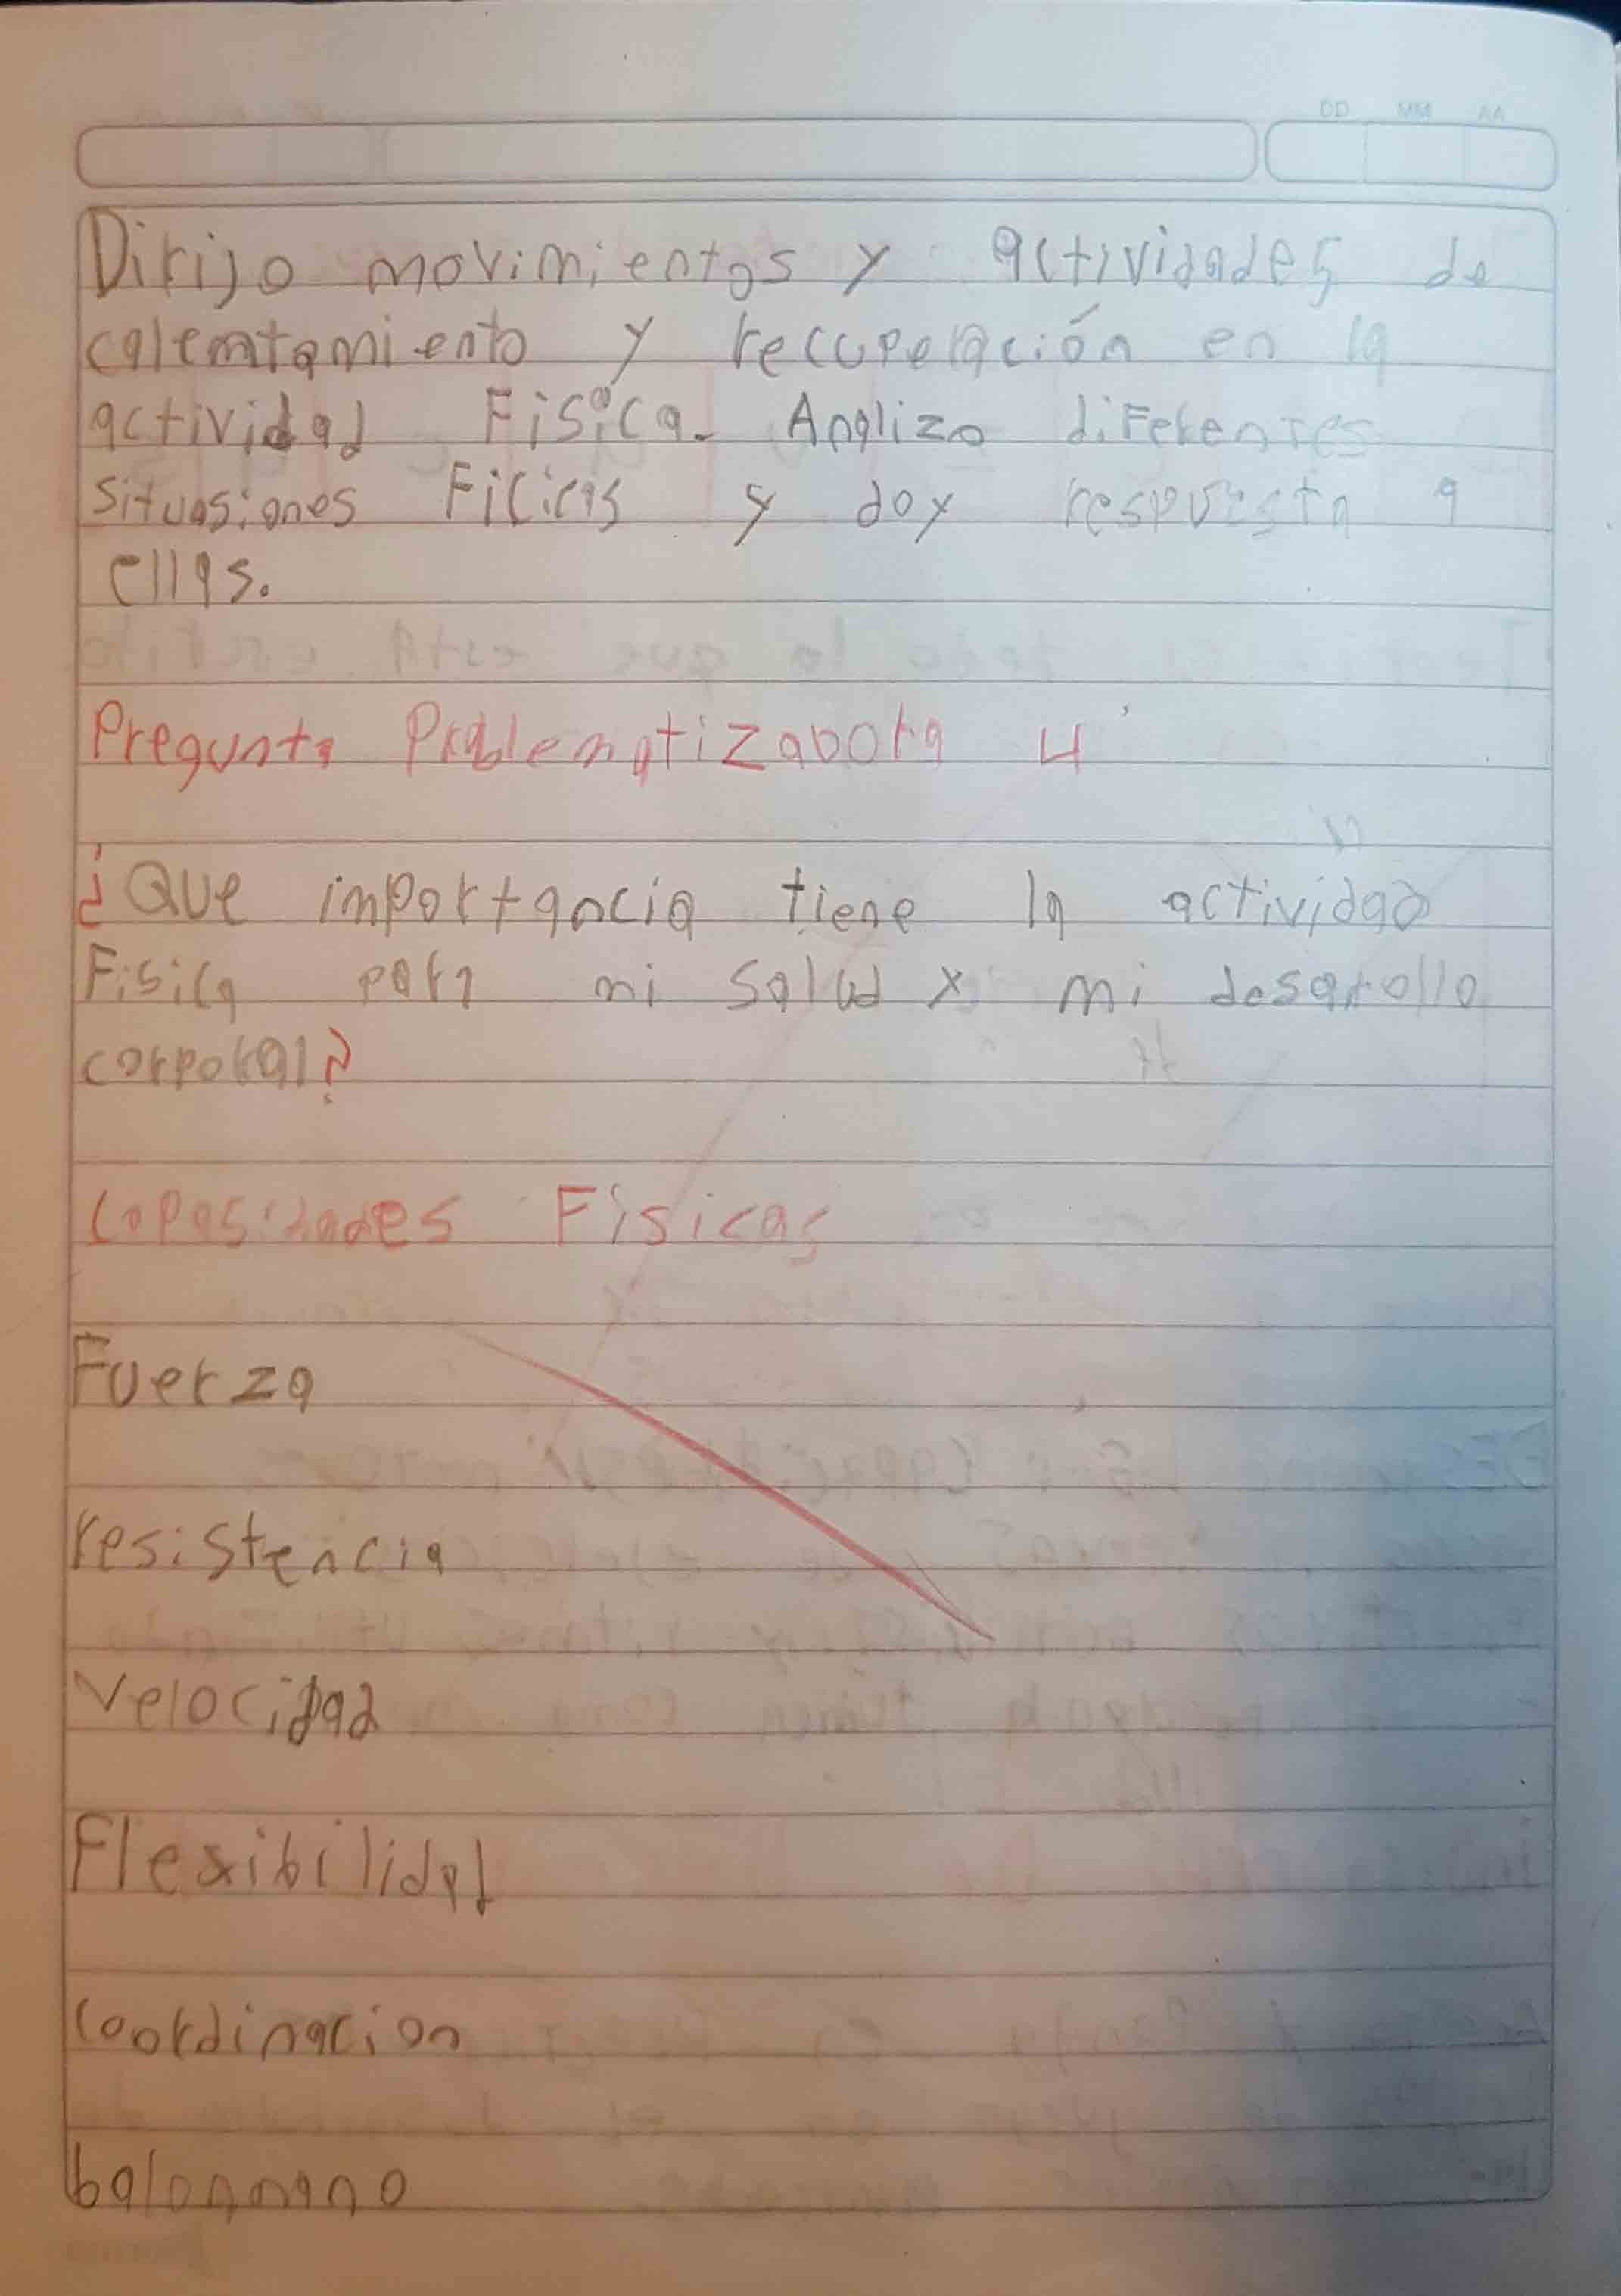 DD MM AA
Dirijo movimientos y actividades de
calemtamiento y recuperación en la
actividad Fisica. Analizo diferentes
situasiones Ficicas y doy respuesta a
ellas.
Pregunta Problematizadora 4
¿Que importancia tiene la actividad
Fisica para mi salud y mi desarollo
corporal?
Copasidades Fisicas
Fuerza
resistencia
Velocidad
Flexibilidad
coordinacion
balonmano